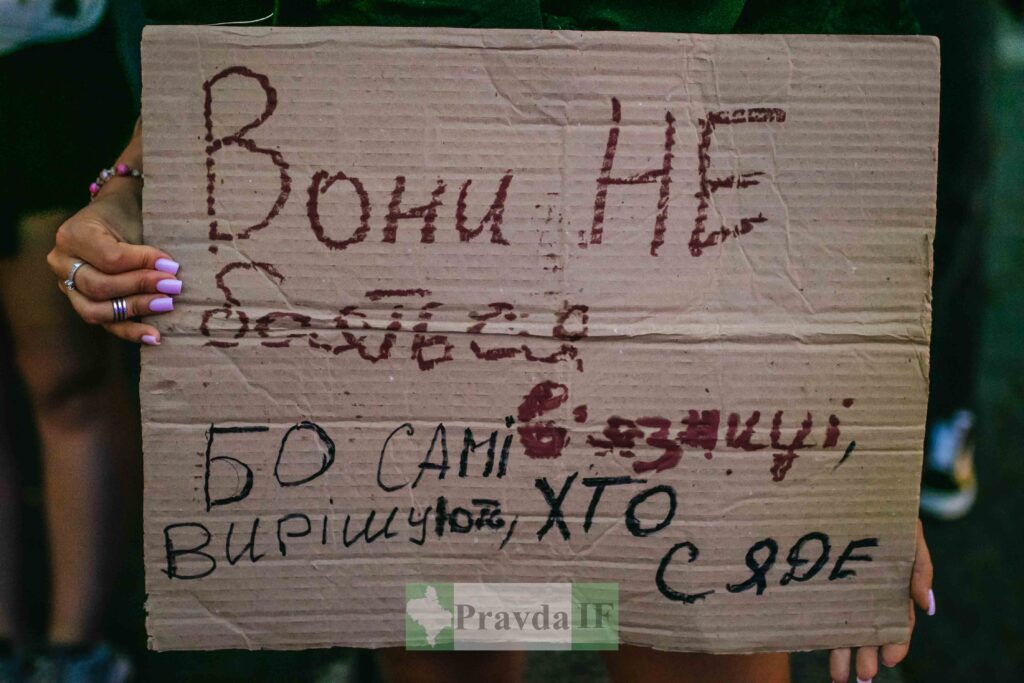 Вони НЕ
бояться
в'язниці,
БО САМІ
вирішують, ХТО
СЯДЕ
Pravda IF